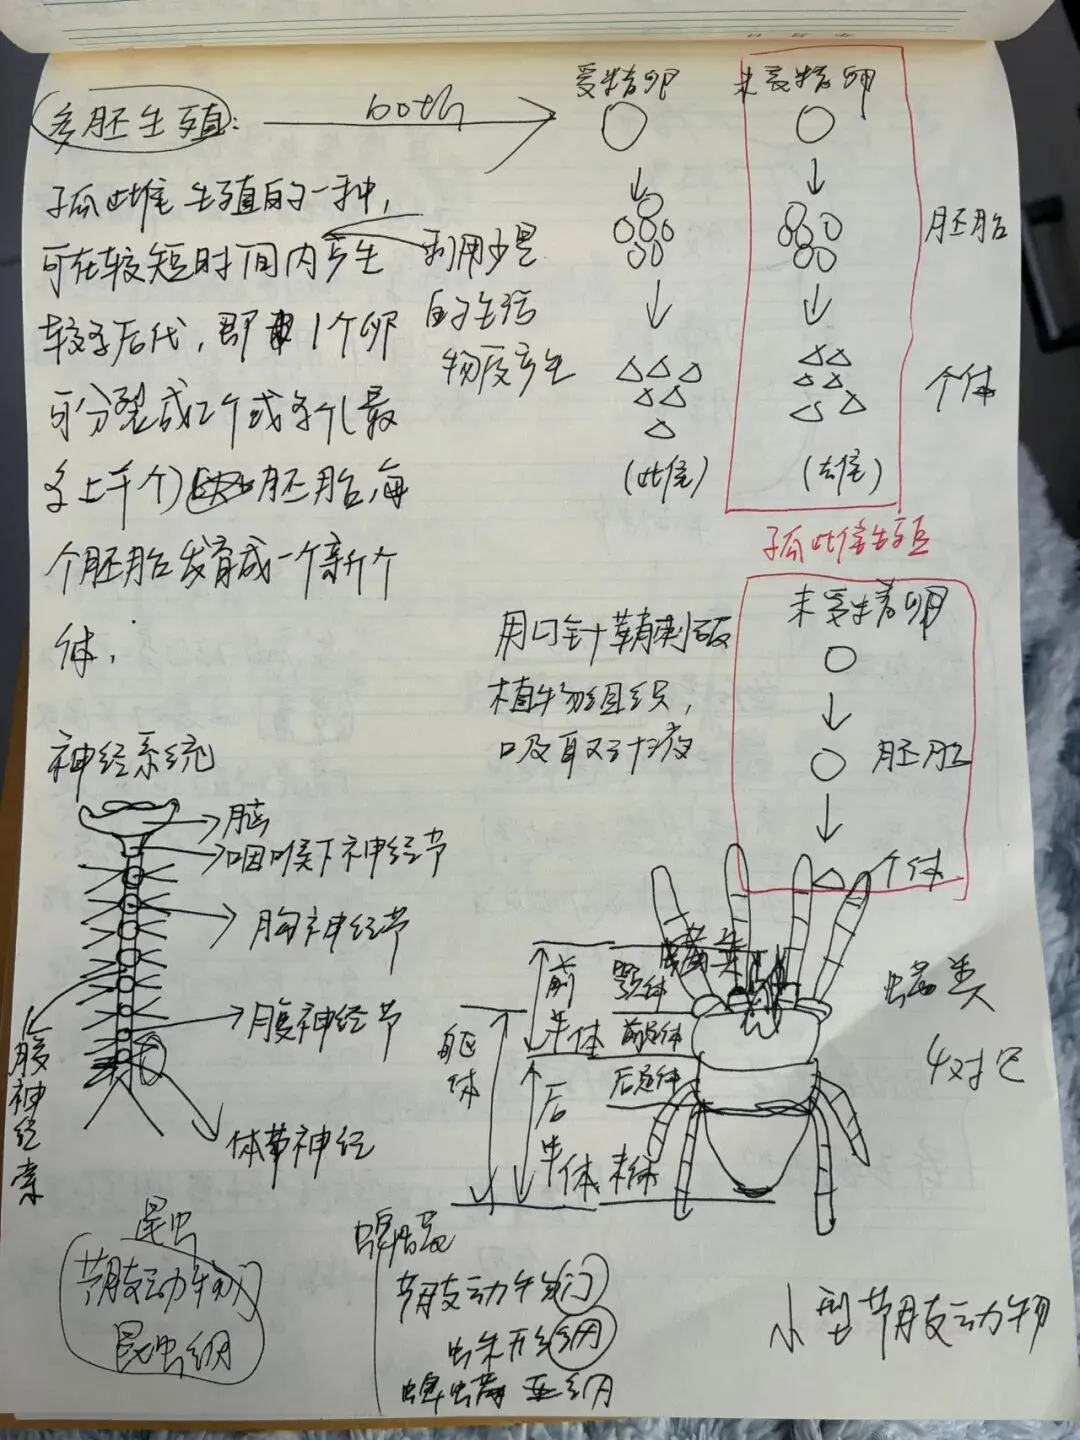 多胚生殖:
both
孤雌生殖的一种,
可在较短时间内产生
较多后代,即1个卵
可分裂成2个或多个(最
多上千个)胚胎,每
个胚胎发育成一个新个
体.
利用少量
的生活
物质产生
受精卵
(雌)
未受精卵
(雄)
胚胎
个体
孤雌生殖
未受精卵
胚胎
个体
用口针鞘刺破
植物组织,
吸取汁液
神经系统
脑
咽喉下神经节
胸神经节
腹神经节
腹神经索
体节神经
昆虫
节肢动物门
昆虫纲
前半体
颚体
前足体
躯体
后足体
后半体
末体
螨类
螨类
4对足
节肢动物门
蛛形纲
蜱螨亚纲
小型节肢动物